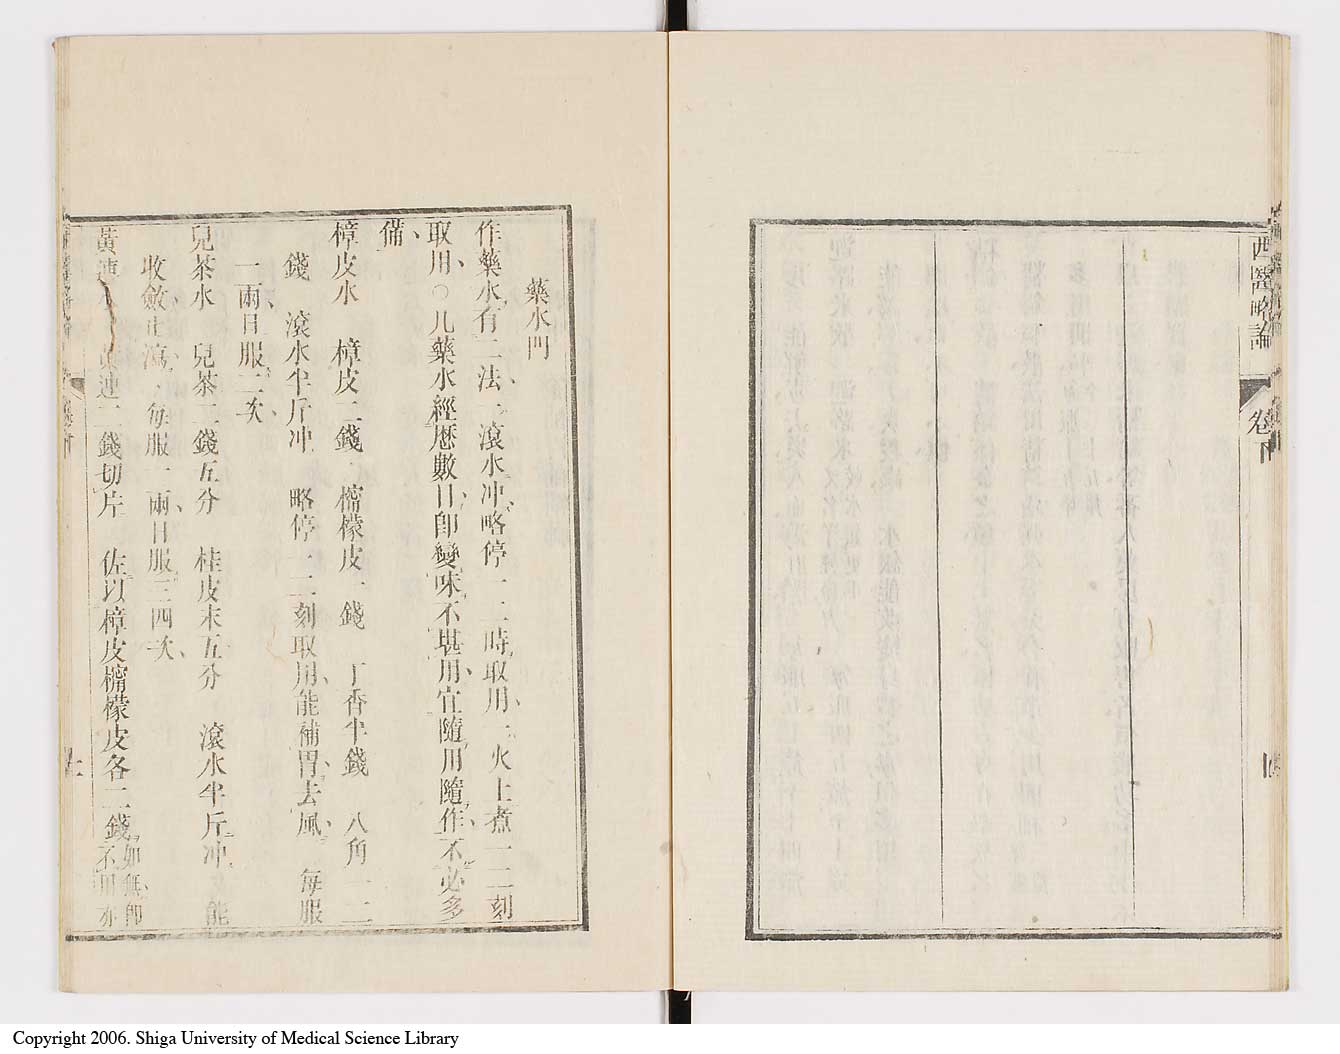 西醫略論
卷下
藥水門
作藥水有二法一滾水冲略停一二時取用一火上煮一二刻
取用○凡藥水經歷數日即變味不堪用宜隨用隨作不必多
備
樟皮水 樟皮二錢 檸檬皮一錢 丁香半錢 八角一二
錢 滾水半斤冲 略停一二刻取用能補胃去風 每服
一兩日服二次
兒茶水 兒茶二錢五分 桂皮末五分 滾水半斤冲 能
收斂止瀉 每服一兩日服三四次
黃連水 黃連二錢切片 佐以樟皮檸檬皮各二錢如無即
不用亦
Copyright 2006. Shiga University of Medical Science Library